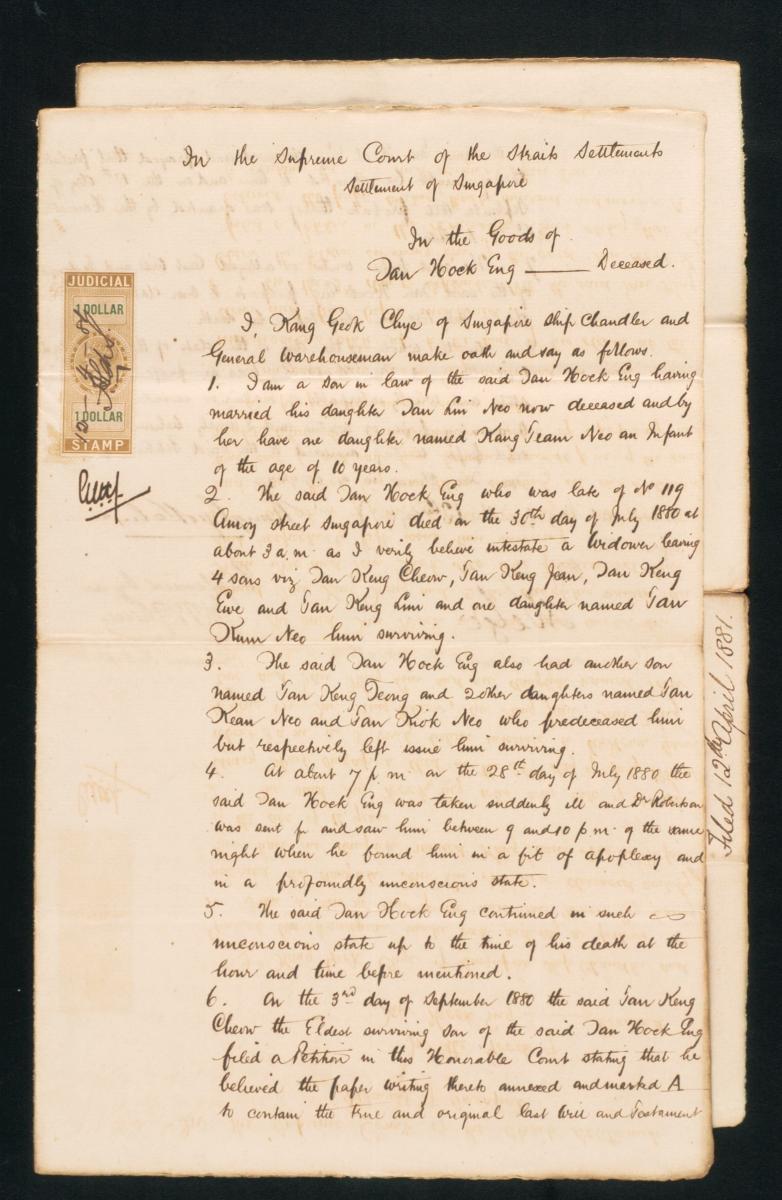 In the Supreme Court of the Straits Settlements
Settlement of Singapore
In the Goods of
Tan Hock Eng —— Deceased.
JUDICIAL
1 DOLLAR
1 DOLLAR
STAMP
I, Kang Geok Chye of Singapore Ship Chandler and
General Warehouseman make oath and say as follows.
1. I am a son in law of the said Tan Hock Eng having
married his daughter Tan Lin Neo now deceased and by
her have one daughter named Kang Team Neo an Infant
of the age of 10 years.
2. The said Tan Hock Eng who was late of No 119
Amoy Street Singapore died on the 30th day of July 1880 at
about 3 a.m. as I verily believe intestate a Widower leaving
4 sons viz Tan Keng Cheow, Tan Keng Jean, Tan Keng
Ewe and Tan Keng Lim and one daughter named Tan
Kum Neo him surviving.
3. The said Tan Hock Eng also had another son
named Tan Keng Teong and 2 other daughters named Tan
Kean Neo and Tan Kiok Neo who predeceased him
but respectively left issue him surviving.
4. At about 7 p.m. on the 28th day of July 1880 the
said Tan Hock Eng was taken suddenly ill and Dr Robertson
was sent for and saw him between 9 and 10 p.m. of the same
night when he found him in a fit of apoplexy and
in a profoundly unconscious state.
5. The said Tan Hock Eng continued in such
unconscious state up to the time of his death at the
hour and time before mentioned.
6. On the 3rd day of September 1880 the said Tan Keng
Cheow the Eldest surviving son of the said Tan Hock Eng
filed a Petition in this Honorable Court stating that he
believed the paper writing thereto annexed and marked A
to contain the true and original last Will and Testament
Filed 12th April 1881.